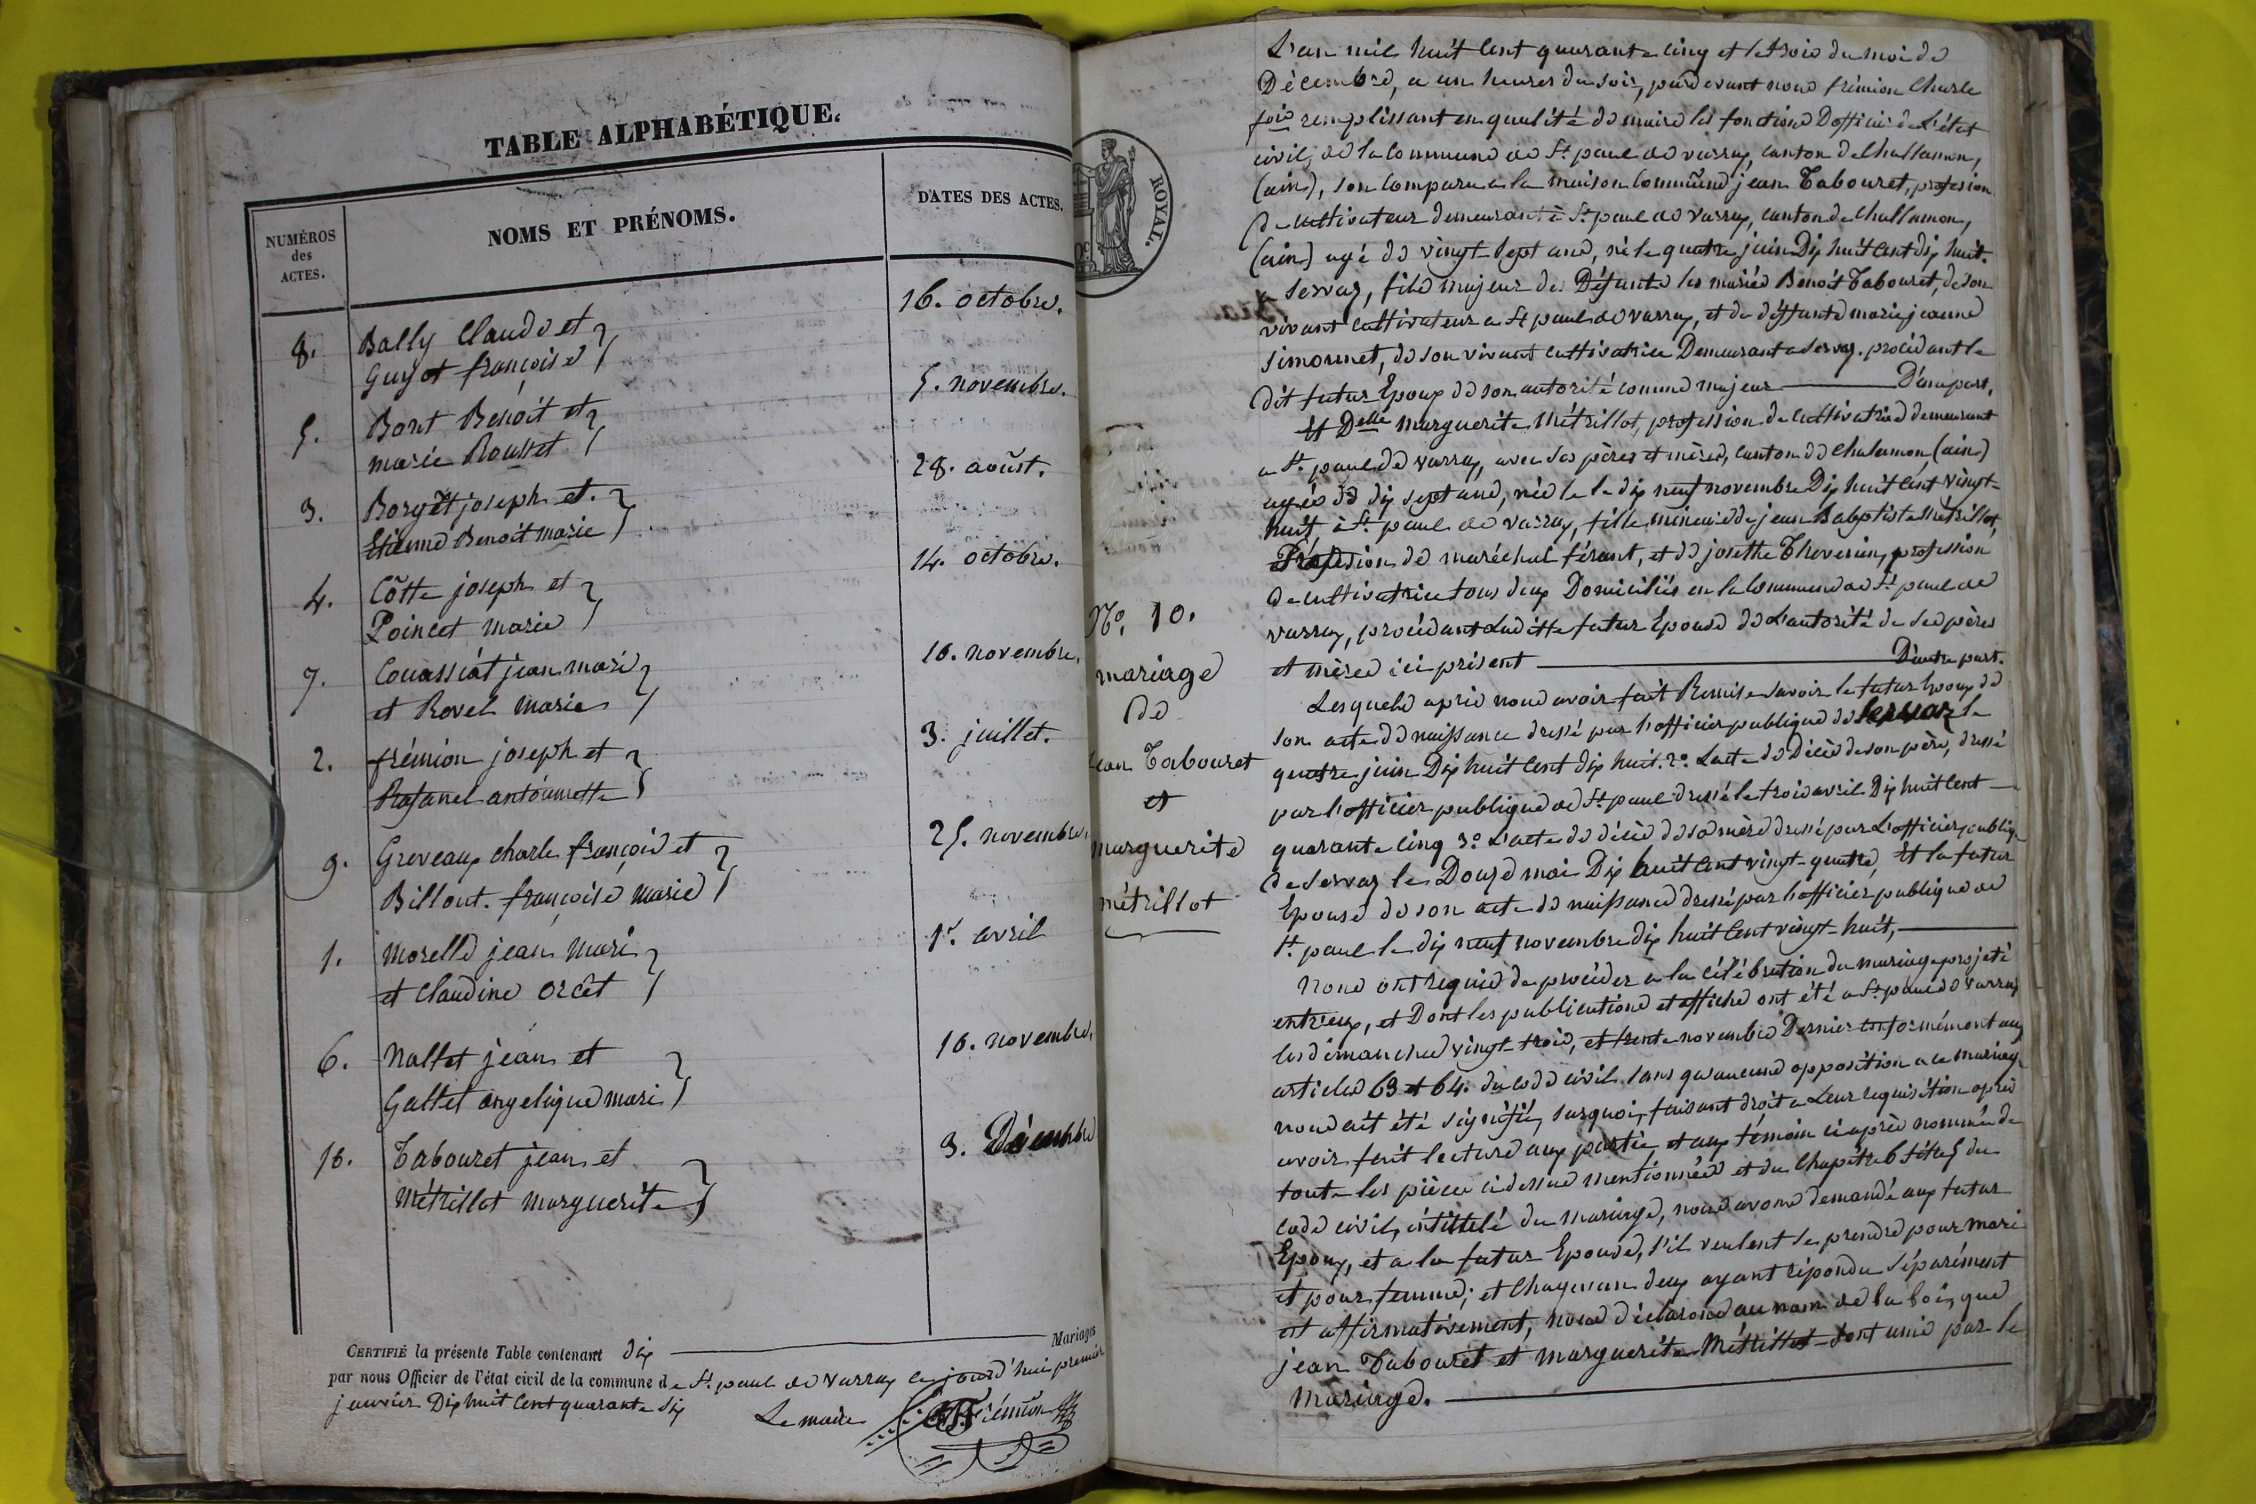 TABLE ALPHABÉTIQUE.
NUMÉROS
des
ACTES.
NOMS ET PRÉNOMS.
DATES DES ACTES.
8. Bally Claude et 16. octobre.
Guyot françoise
5. Bont Benoit et 5. novembre.
marie Roussel
3. Borget joseph et. 28. août.
Etienne Benoit marie
4. Côtte joseph et 14. octobre.
Poincet marie
7. Couassiat jean mari 10. novembre.
et Rovel marie
2. frémion joseph et 3. juillet.
Rafanel antoinette
9. Greveaux charle françoid et 25. novembre.
Billout. françoise marie
1. Morelle jean mari 1r. avril
et Claudine orcêt
6. Nallet jean et 10. novembre.
Gallet angelique mari
10. Tabouret jean et 3. Décembre
Métrillot marguerite
CERTIFIÉ la présente Table contenant dix Mariages
par nous Officier de l'état civil de la commune de St. paul de varray ce jourd'hui premier
janvier Dix huit Cent quarante six
Le maire frémion
ROYAL.
No. 10.
mariage
de
jean Tabouret
et
marguerite
métrillot
L'an mil huit Cent quarante cinq et le trois du moi de
Décembre, a un heures du soir, pardevant nous frémion Charle
fois remplissant en qualité de maire les fonctions D'officier de L'état
civil, de la Commune de St. paul de varray, canton de Challamon,
(ain), son Comparu a la maison Commune jean Tabouret, profesion
de cultivateur demeurant à St. paul de varray, canton de Challamon,
(ain) agé de vingt-sept ans, né le quatre juin Dix huit Cent dix huit.
a servas, fils majeur des Défunts les mariés Benoit Tabouret, de son
vivant Cultivateur a St. paul de varray, et de déffunte marie jeanne
Simonnet, de son vivant cultivatrice Demeurant a Servas. procédant le
dit futur Epoux de son autorité comme majeur D'une part,
Et Delle marguerite Métrillot, profession de Cultivatrice demeurant
a St. paul de varray, avec ses pères et mères, canton de Chalamon, (ain)
agée de dix sept ans, née le le dix neuf novembre Dix huit Cent vingt-
huit, à St. paul de varray, fille mineure de jean Babptiste Métrillot,
Profession de maréchal férant, et de josette Thevenin, profession
de cultivatrice tous deux Domiciliés en la Commune de St. paul de
varray, procédant Laditte futur Epouse de L'autorité de ses pères
et mères ici présent D'autre part.
Lesquels après nous avoir fait Remise savoir le futur Epoux de
son acte de naissance dressé par l'officier publique de Servaz le
quatre juin Dix huit Cent dix huit. 2o. L'acte de Décès de son père, dressé
par l'officier publique de St. paul dressé le trois avril Dix huit Cent
quarante cinq 3o L'acte de décès de sa mère dressé par L'officier publiq
de Servas le Douze mai Dix huit Cent vingt-quatre, Et la futur
Epouse de son acte de naissance dressé par l'officier publique de
St. paul le dix neuf novembre dix huit Cent vingt-huit,
Nous ont requis de procéder a la célébration du mariage projeté
entr'eux, et Dont les publications et affiche ont été a St. paul de varray
les dimanches vingt-trois, et trente novembre Dernier conformément aux
articles 63 et 64. du code civil. sans qu'aucune opposition a ce mariage
nous ait été signifié, surquoi, faisant droit a Leur requisition après
avoir fait lecture aux partie et aux témoin ci après nommés de
toute les pièces ci dessus mentionnées et du Chapitre 6 titre 5 du
code civil, intittelé du mariage, nous avons demandé aux futur
Epoux, et a la futur Epouse, s'il veulent se prendre pour mari
et pour femme; et Chaquun deux ayant répondu séparément
et affirmativement, nous déclarons au nom de la loi, que
jean Tabouret et marguerite Métrillot sont unis par le
mariage.